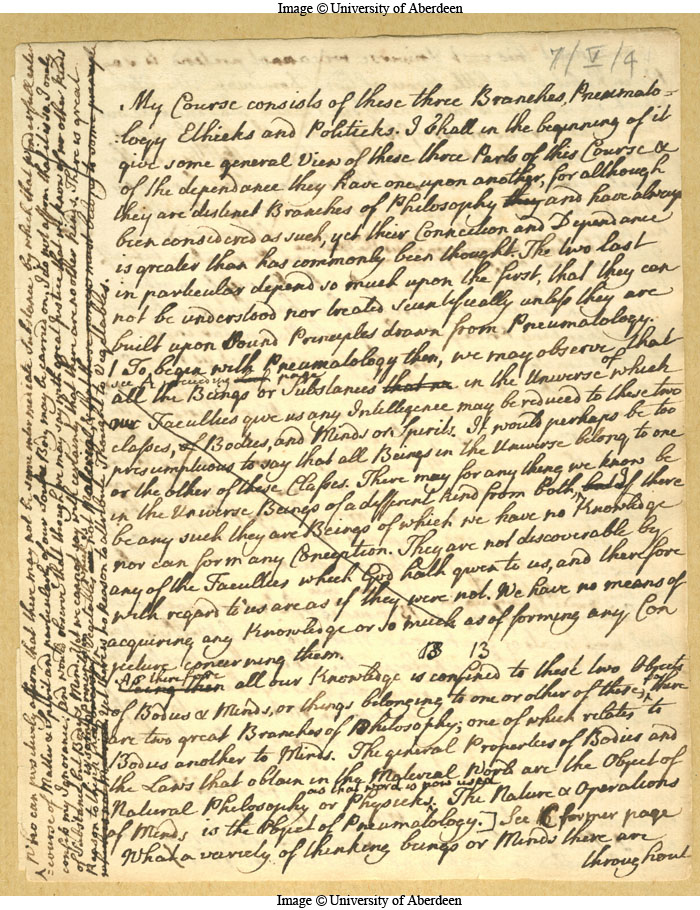 Image © University of Aberdeen
7/V/4
My Course consists of these three Branches, Pneumato=
logy Ethicks and Politicks. I shall in the beginning of it
give some general View of these three Parts of this Course &
of the dependance they have one upon another, for although
they are distinct Branches of Philosophy they and have always
been considered as such, yet their Connection and Dependance
is greater than has commonly been thought. The two last
in particular depend so much upon the first, that they can
not be understood nor treated scientifically unless they are
built upon Sound Principles drawn from Pneumatology.
1 To begin with Pneumatology then, we may observe that
see A preceeding page
all the Beings or Substances that in the Universe of which
our Faculties give us any Intelligence may be reduced to these two
classes, of Bodies, and Minds or Spirits. It would perhaps be too
presumptuous to say that all Beings in the Universe belong to one
or the other of these Classes. There may for any thing we know be
in the Universe Beings of a different kind from both, if there
be any such they are Beings of which we have no Knowledge
nor can form any Conception. They are not discoverable by
any of the Faculties which God hath given to us, and therefore
with regard to us are as if they were not. We have no means of
acquiring any Knowledge or so much as of forming any Con
jecture concerning them. 13 13
As therefore
all our Knowledge is confined to these two Objects
of Bodies & Minds, or things belonging to one or other of these, there
are two great Branches of Philosophy, one of which relates to
Bodies another to Minds. The general Properties of Bodies and
the Laws that obtain in the Material World are the Object of
as that word is now used
Natural Philosophy or Physicks. The Nature & Operations
of Minds is the Object of Pneumatology.] See former page
What a variety of thinking beings or Minds there are
throughout
A Who can positively affirm that there may not be some intermediate Substance by which that
course of Matter & Spirit and particularly of our Soul & Body may be carried on. I do not affirm that it is so I only
confess my Ignorance; and would observe that though we may say with great justice that we know of no other kinds
of Substances but Body & Mind yet we cannot say with certainty that there are no other kinds. There is great
Reason to
yet there is no reason to attribute Thought to Vegetables.
Image © University of Aberdeen